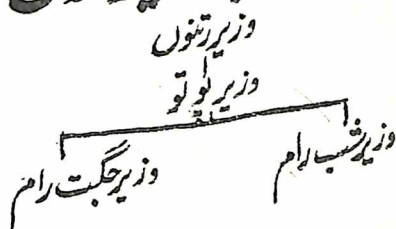 وزیر رتنوں
وزیر لو تو
وزیر شب رام
وزیر جگت رام